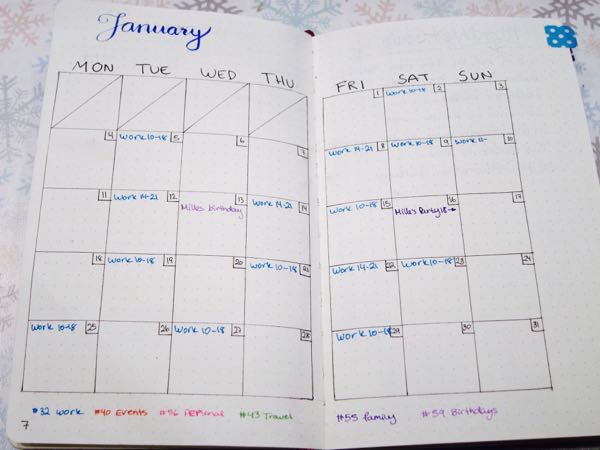 January
MON TUE WED THU FRI SAT SUN
1 Work 10-18 2 3
4 Work 10-18 5 6 7 Work 14-21 8 Work 10-18 9 Work 11- 10
11 Work 14-21 12 13 Work 14-21 14 Work 10-18 15 16 17
birthday Party 18→
18 Work 10-18 19 20 Work 10-18 21 Work 14-21 22 Work 10-18 23 24
Work 10-18 25 26 Work 10-18 27 28 Work 10-18 29 30 31
#32 Work #40 Events #36 Personal #43 Travel #55 family #59 Birthdays
7